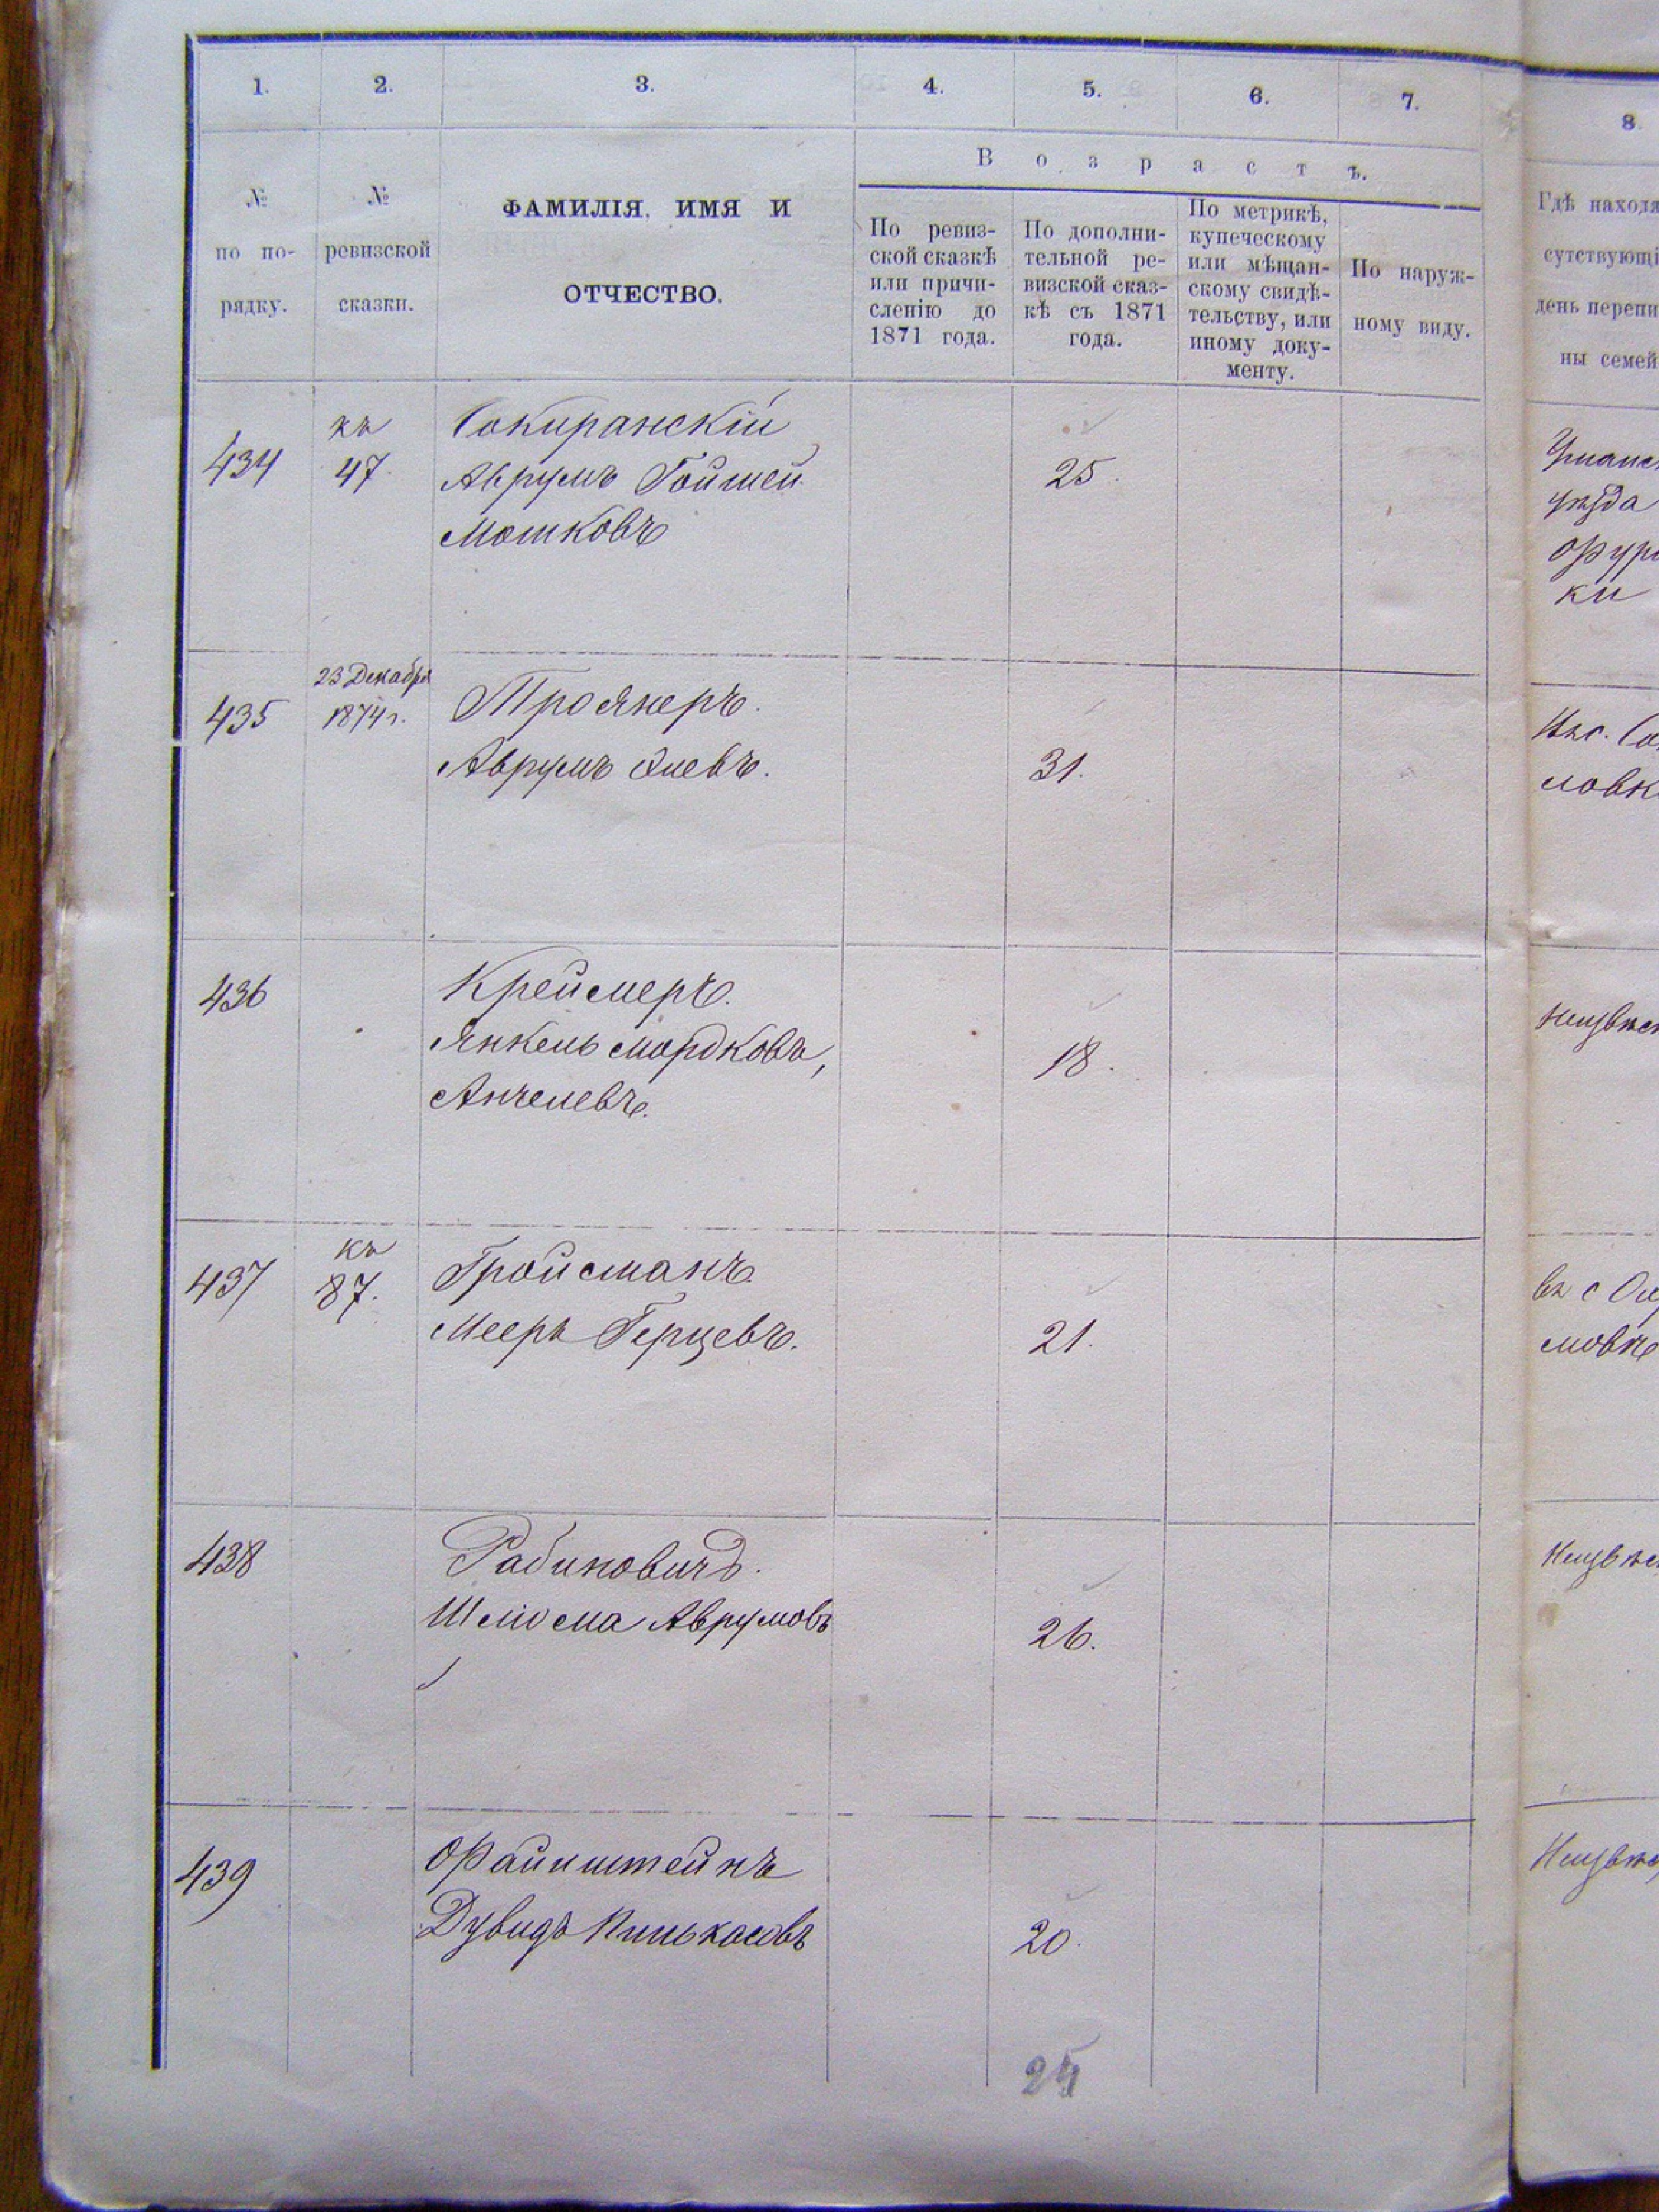 1. 2. 3. 4. 5. 6. 7. 8.
В о з р а с т ъ.
№ по по-
рядку.
№
ревизской
сказки.
ФАМИЛІЯ, ИМЯ И
ОТЧЕСТВО.
По ревиз-
ской сказкѣ
или причи-
сленію до
1871 года.
По дополни-
тельной ре-
визской сказ-
кѣ съ 1871
года.
По метрикѣ,
купеческому
или мѣщан-
скому свидѣ-
тельству, или
иному доку-
менту.
По наруж-
ному виду.
Гдѣ находя
сутствующі
день перепи
ны семей
434
къ
47
Сокиранскій
Аврумъ Гойшей
Мошковъ
25.
уѣзда
ки
435
23 Декабря
1874 г.
Троянеръ.
Аврумъ
31.
ловк
436
Креймеръ.
Янкель Мордковъ,
Анчелевъ.
18.
437
къ
87.
Гройсманъ.
Мееръ Герцевъ.
21.
въ с
438
Рабиновичъ.
Шліома Аврумовъ
26.
439
Файнштейнъ
Дувидъ Пинькасовъ
20.